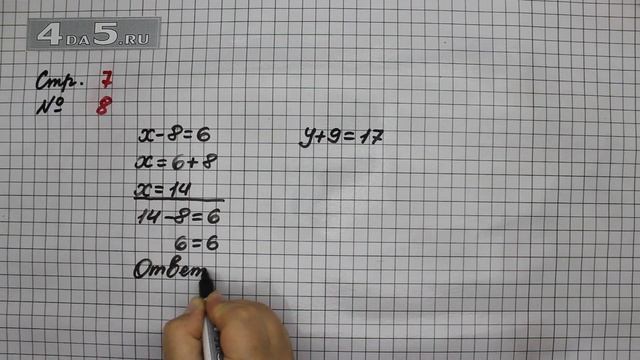 4DA5.RU
Стр. 7
№ 8
x-8=6
x=6+8
x=14
14-8=6
6=6
Ответ
y+9=17